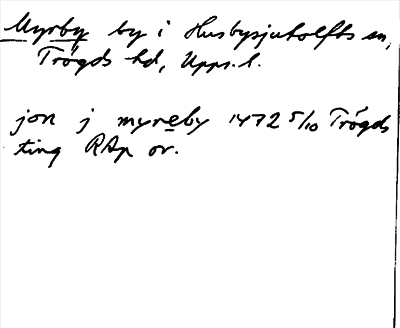 Myrby by i Husbysjutolfts sn,
Trögds hd, Upps. l.
jon j myreby 1472 5/10 Trögds
ting RAp or.